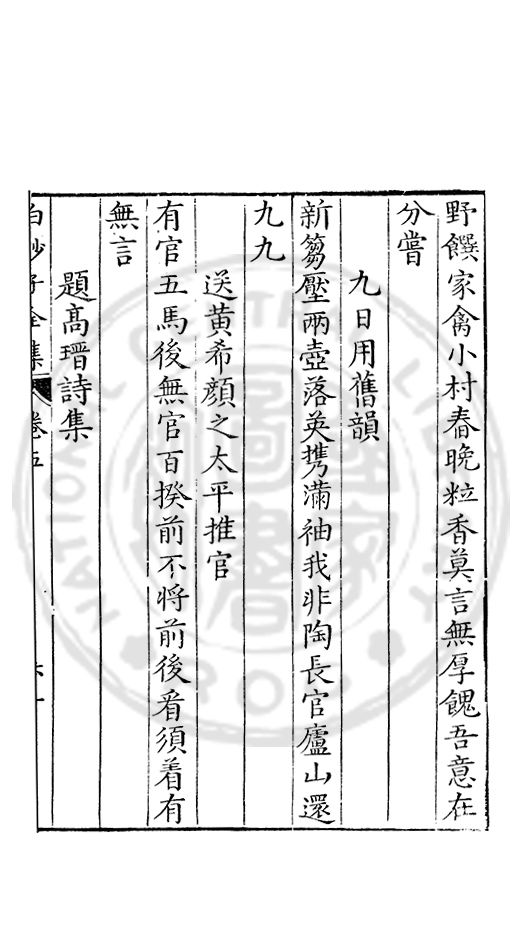 野饌家禽小村春晚粒香莫言無厚餽吾意在
分嘗
九日用舊韻
新篘壓兩壺落英携滿袖我非陶長官廬山還
九九
送黃希顏之太平推官
有官五馬後無官百揆前不將前後看須着有
無言
題高瑨詩集
白沙子全集 卷五